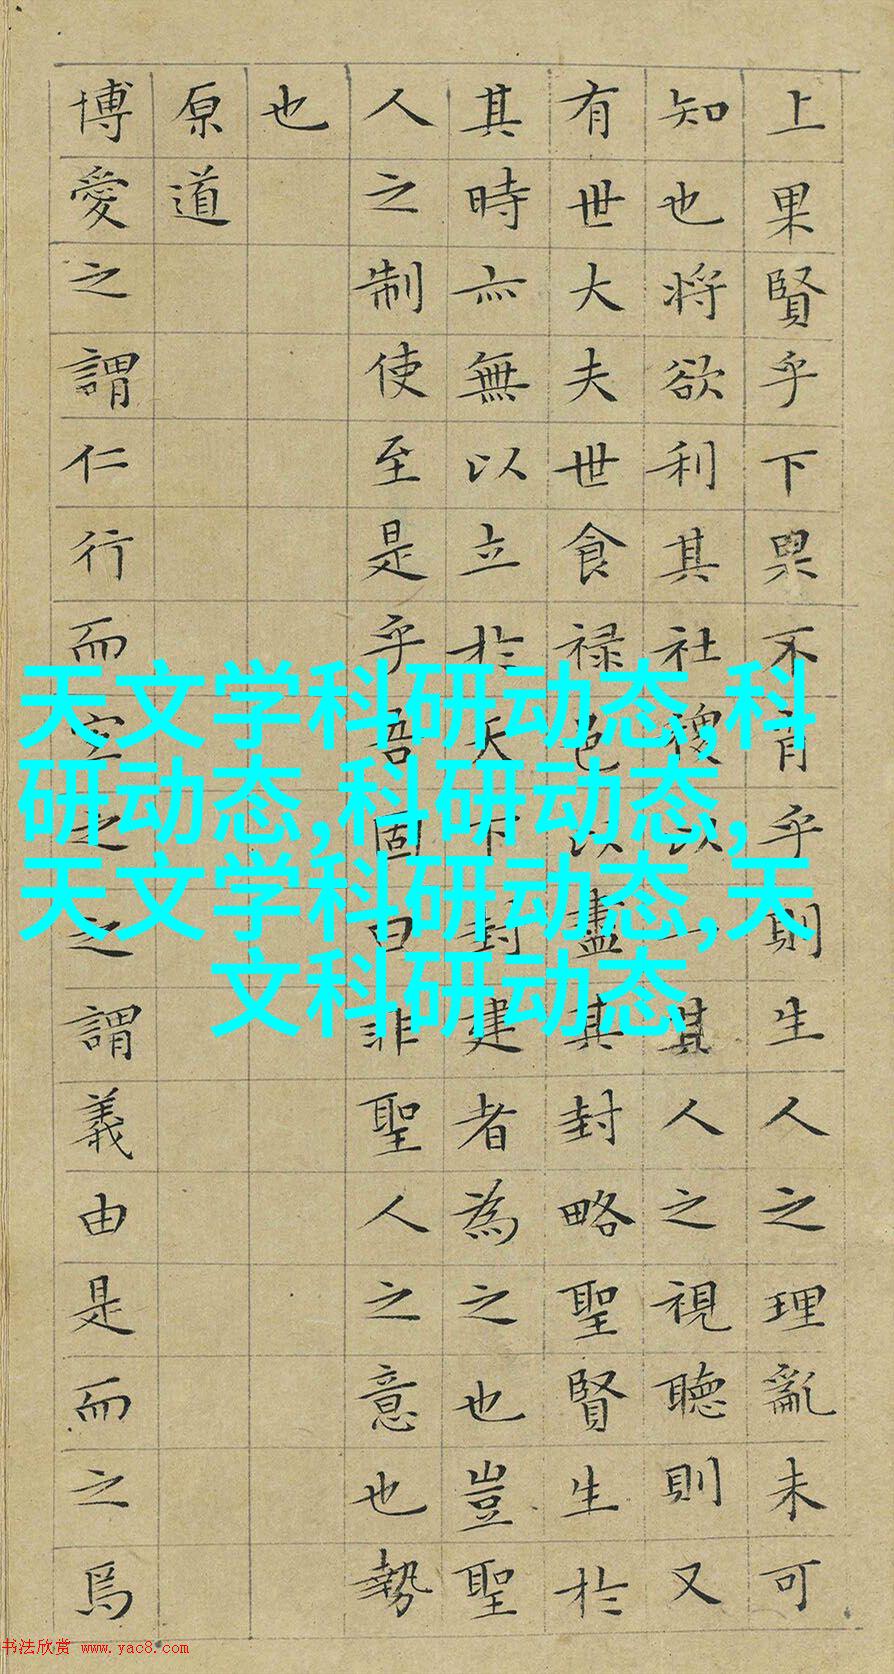 上果賢乎下果不肖乎則生人之理亂未可
知也將欲利其社稷以一其人之視聽則又
有世大夫世食禄邑以盡其封略聖賢生於
其時亦無以立於天下封建者為之也豈聖
人之制使至是乎吾固曰非聖人之意也勢
也
原道
博愛之謂仁行而宜之之謂義由是而之焉
天文学科研动态,科
研动态,科研动态,
天文学科研动态,天
文科研动态
书法欣赏 www.yac8.com